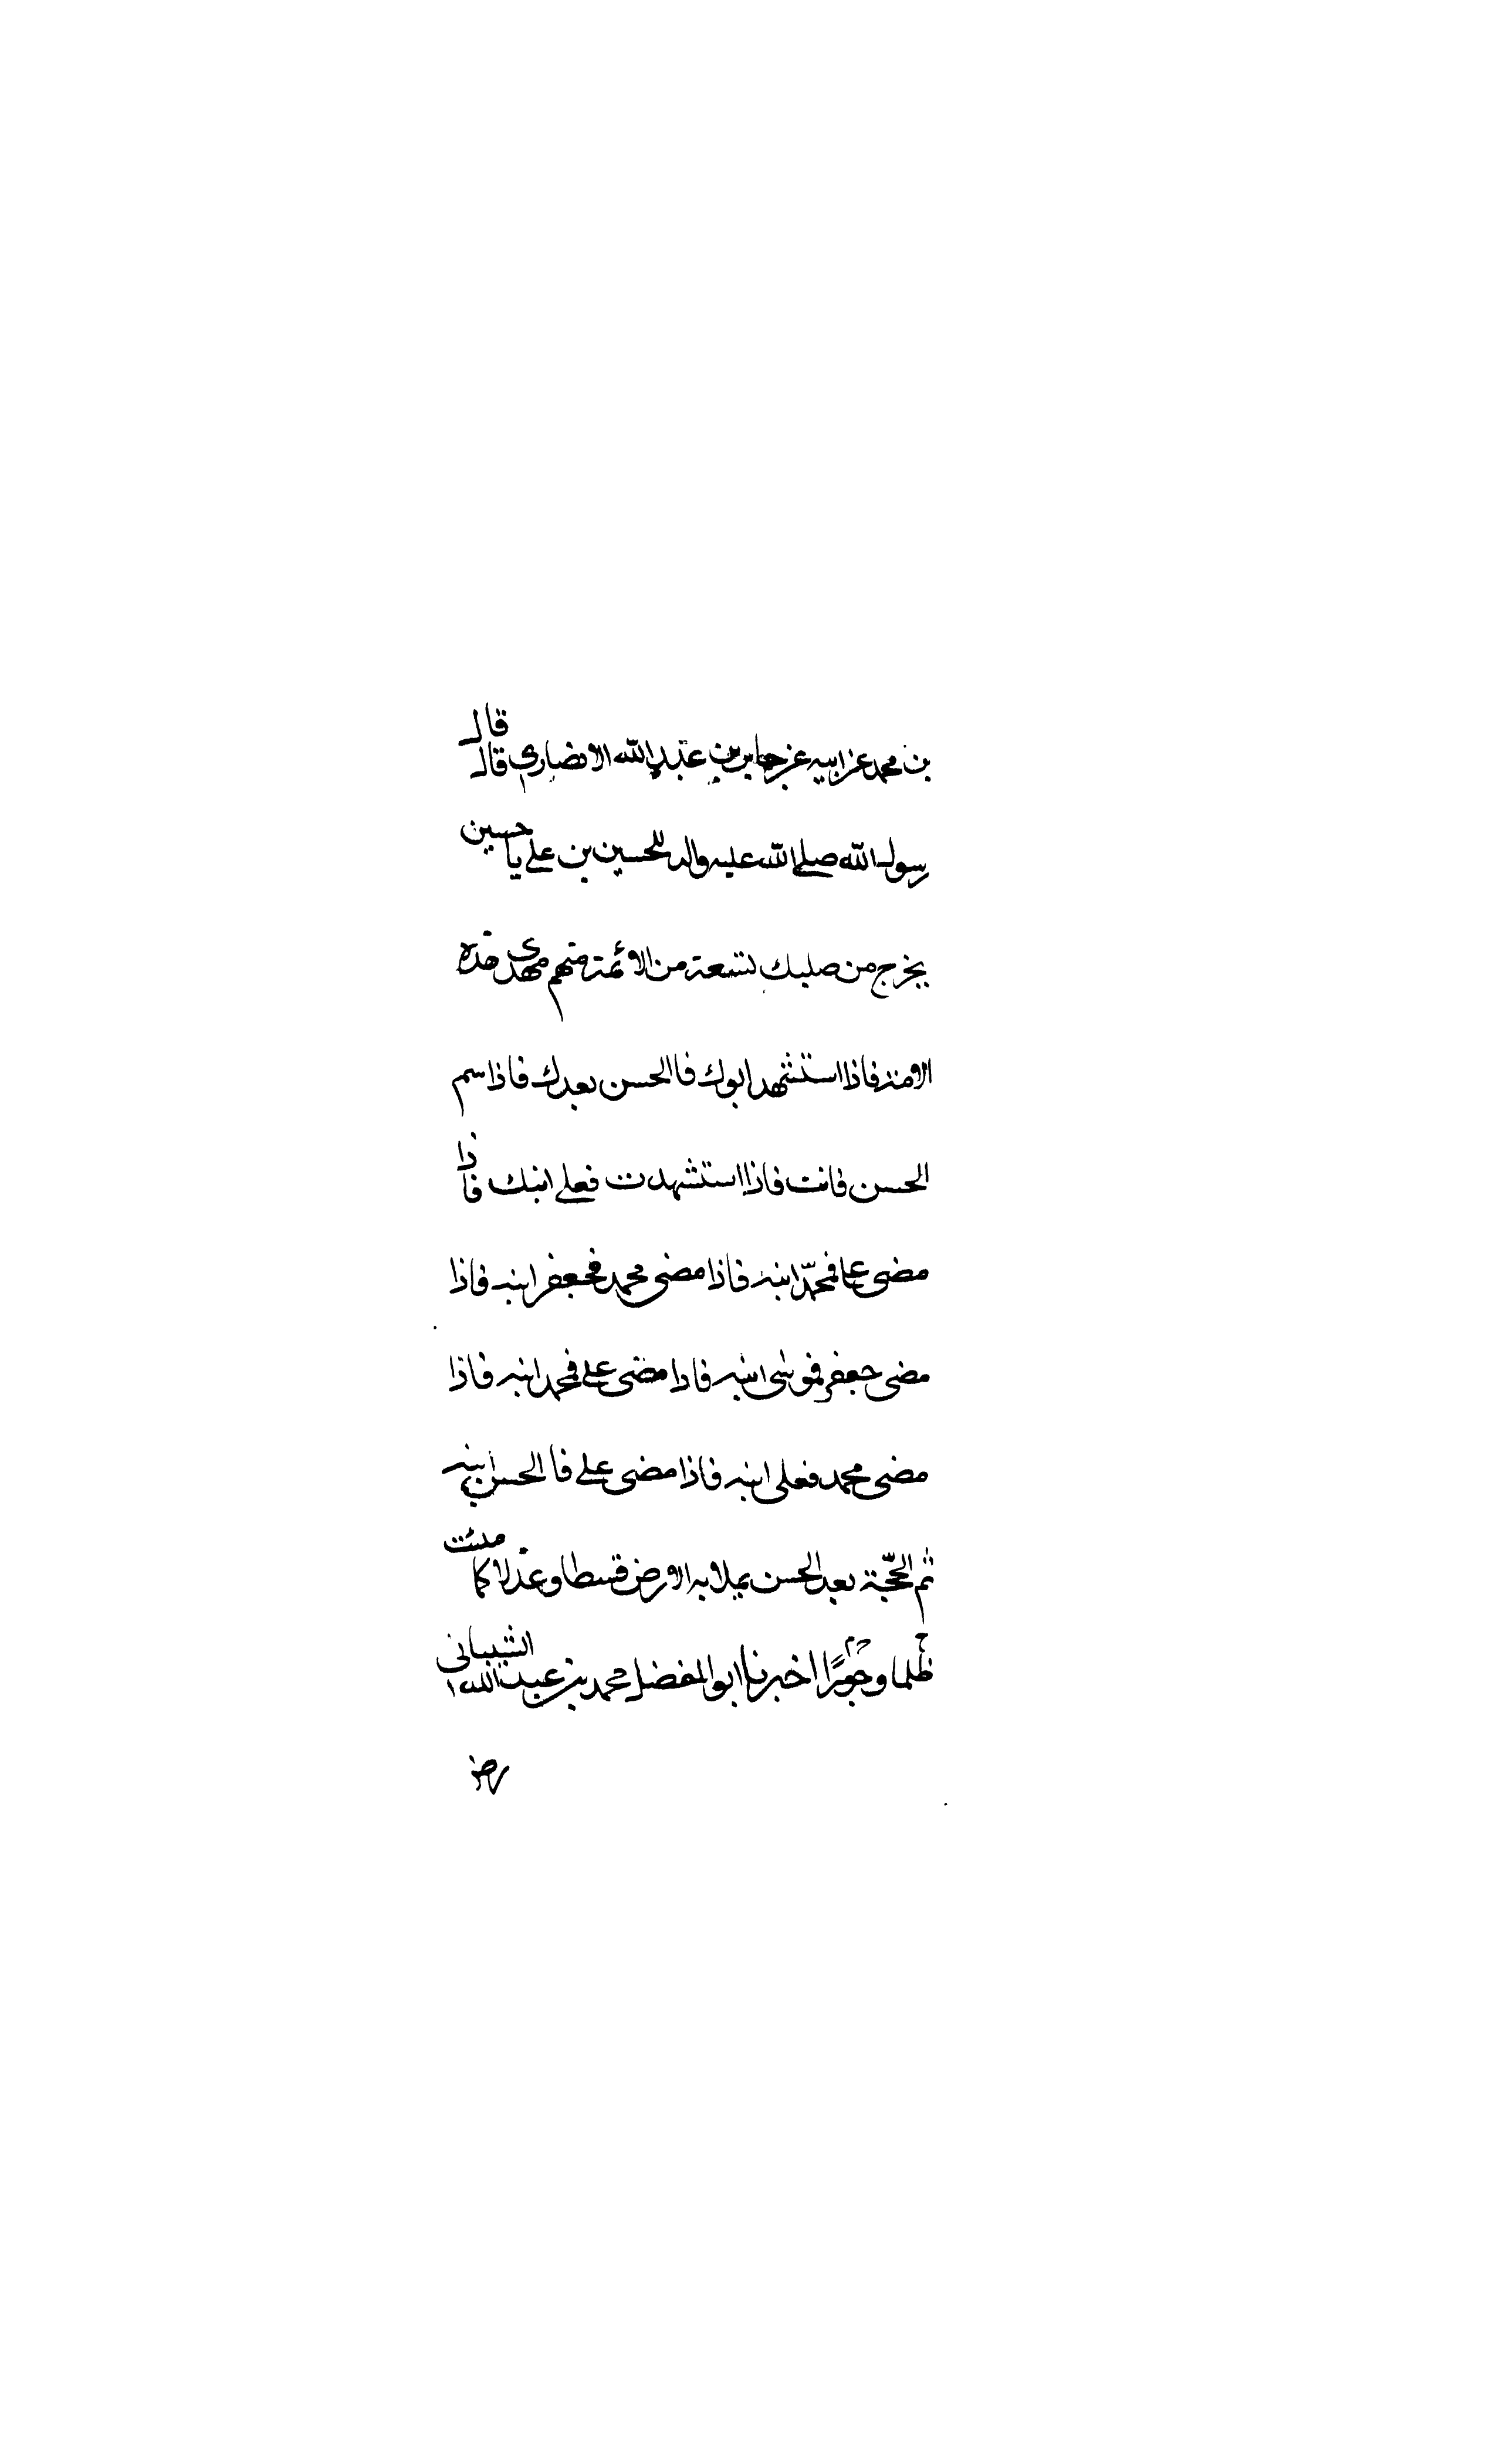 بن محمد عن ابيه عن جابر بن عبد الله الانصاري قال قال
رسول الله صلى الله عليه واله للحسين بن علي يا حسين
يخرج من صلبك تسعة من الائمة منهم مهدى هذه
الامة فاذا استشهد ابوك فالحسن بعدك فاذا سم
الحسن فانت فاذا استشهدت فعلي ابنك فاذا
مضى على فمحمّد ابنه فاذا مضى محمد فجعفر ابنه فاذا
مضى جعفر فموسى ابنه فاذا مضى على فمحمد ابنه فاذا
مضى محمد فعلى ابنه فاذا مضى على فالحسن ابنه
ثم الحجّة بعد الحسن يملا به الارض قسطا وعدلا كما ملئت
ظلما وجورًا اخبرنا ابو المفضل محمد بن عبد الله الشيبانى